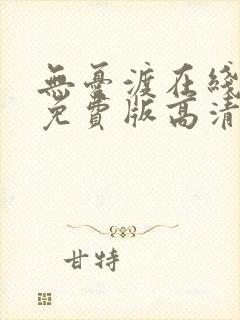 無憂渡在綫
免費版高清
甘特